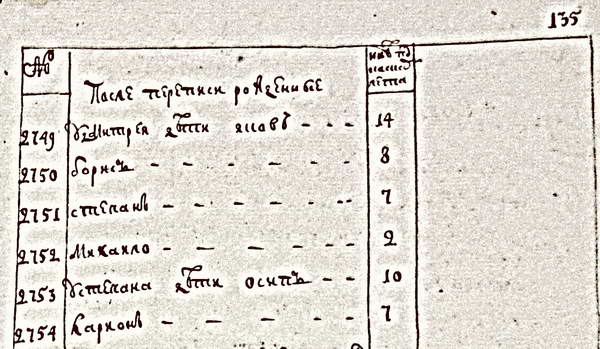 135
№
После переписи рожденные
2749 У Дмитрея дѣти Иавъ 14
2750 Борисъ 8
2751 Степанъ 7
2752 Михаило 2
2753 У Степана дѣти Осипъ 10
2754 Карпонъ 7